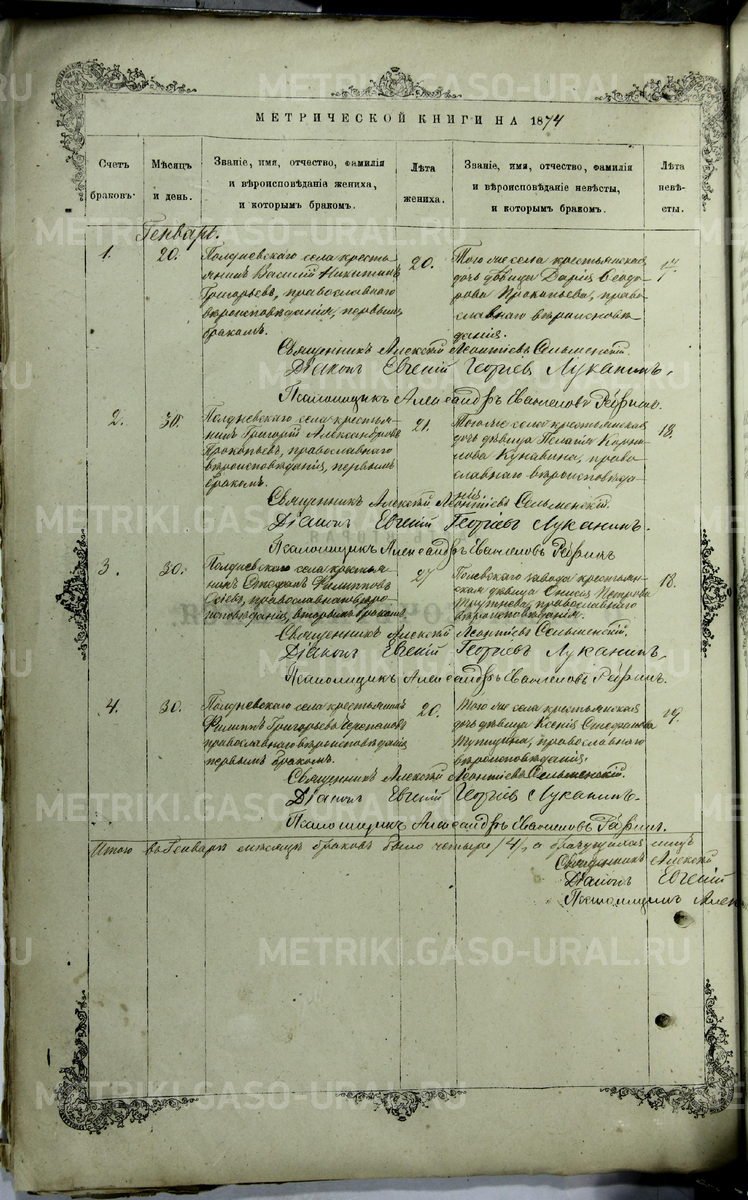 МЕТРИЧЕСКОЙ КНИГИ НА 1874
Счетъ браковъ.
Мѣсяцъ и день.
Званіе, имя, отчество, фамилія
и вѣроисповѣданіе жениха,
и которымъ бракомъ.
Лѣта жениха.
Званіе, имя, отчество, фамилія
и вѣроисповѣданіе невѣсты,
и которымъ бракомъ.
Лѣта невѣсты.
Генварь.
1. 20.
Полдневскаго села кресть-
янинъ Василій Никитинъ
Григорьевъ, православнаго
вѣроисповѣданія, первымъ
бракомъ.
20.
Того же села крестьянская
дочь дѣвица Дарія Ѳеодо-
рова Прокопьева, право-
славнаго вѣроисповѣ-
данія.
17.
Священникъ Алексій Леонтіевъ Сельменскій.
Діаконъ Евгеній Георгіевъ Луканинъ.
Псаломщикъ Александръ
2. 30.
Полдневскаго села крестья-
нинъ Григорій Александровъ
Прокопьевъ, православнаго
вѣроисповѣданія, первымъ
бракомъ.
21.
Того же села крестьянская
дочь дѣвица Пелагія
Кунавина, право-
славнаго вѣроисповѣда-
нія
18.
Священникъ Алексій Леонтіевъ Сельменскій.
Діаконъ Евгеній Георгіевъ Луканинъ.
Псаломщикъ Александръ
3. 30.
Полдневскаго села крестья-
нинъ Стефанъ Филипповъ
православнаго вѣро-
исповѣданія, вторымъ бракомъ.
27
Полевскаго завода крестьян-
ская дѣвица Петрова
православнаго
вѣроисповѣданія.
18.
Священникъ Алексій Леонтіевъ Сельменскій.
Діаконъ Евгеній Георгіевъ Луканинъ.
Псаломщикъ Александръ
4. 30.
Полдневскаго села крестьянинъ
Филиппъ Григорьевъ Черепановъ
православнаго вѣроисповѣданія
первымъ бракомъ.
20.
Того же села крестьянская
дочь дѣвица Ксенія Стефанова
православнаго
вѣроисповѣданія.
19.
Священникъ Алексій Леонтіевъ Сельменскій.
Діаконъ Евгеній Георгіевъ Луканинъ.
Псаломщикъ Александръ
Итого въ Генварѣ мѣсяцѣ браковъ было четыре /4/, а бракущихся лицъ
Священникъ Алексій
Діаконъ Евгеній
Псаломщикъ Алек
METRIKI.GASO-URAL.RU